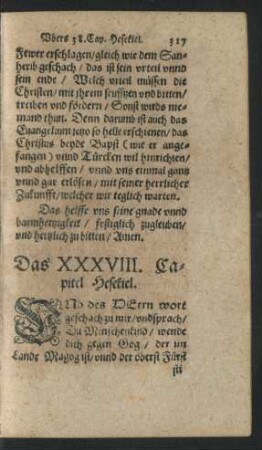 Vbers 38. Cap. Hesekiel. 317
Fewer erschlagen/gleich wie dem San-
herib geschach/das ist sein vrteil vnnd
sein ende/Welch vrteil müssen die
Christen/mit jhrem seufftzen vnd bitten/
treiben vnd fördern/Sonst wirds nie-
mand thun. Denn darumb ist auch das
Euangelium jtzo so helle erschienen/das
Christus beyde Bapst (wie er ange-
fangen) vnnd Türcken wil hinrichten/
vnd abhelffen/vnnd vns einmal gantz
vnnd gar erlösen/mit seiner herrlicher
Zukunfft/welcher wir teglich warten.
Das helffe vns seine gnade vnnd
barmhertzigkeit/festiglich zugleuben/
vnd hertzlich zu bitten/Amen.
Das XXXVIII. Ca-
pitel Hesekiel.
VNd des HErrn wort
geschach zu mir/vnd sprach/
Du Menschenkind/wende
dich gegen Gog/der im
Lande Magog ist/vnnd der öberst Fürst
iij